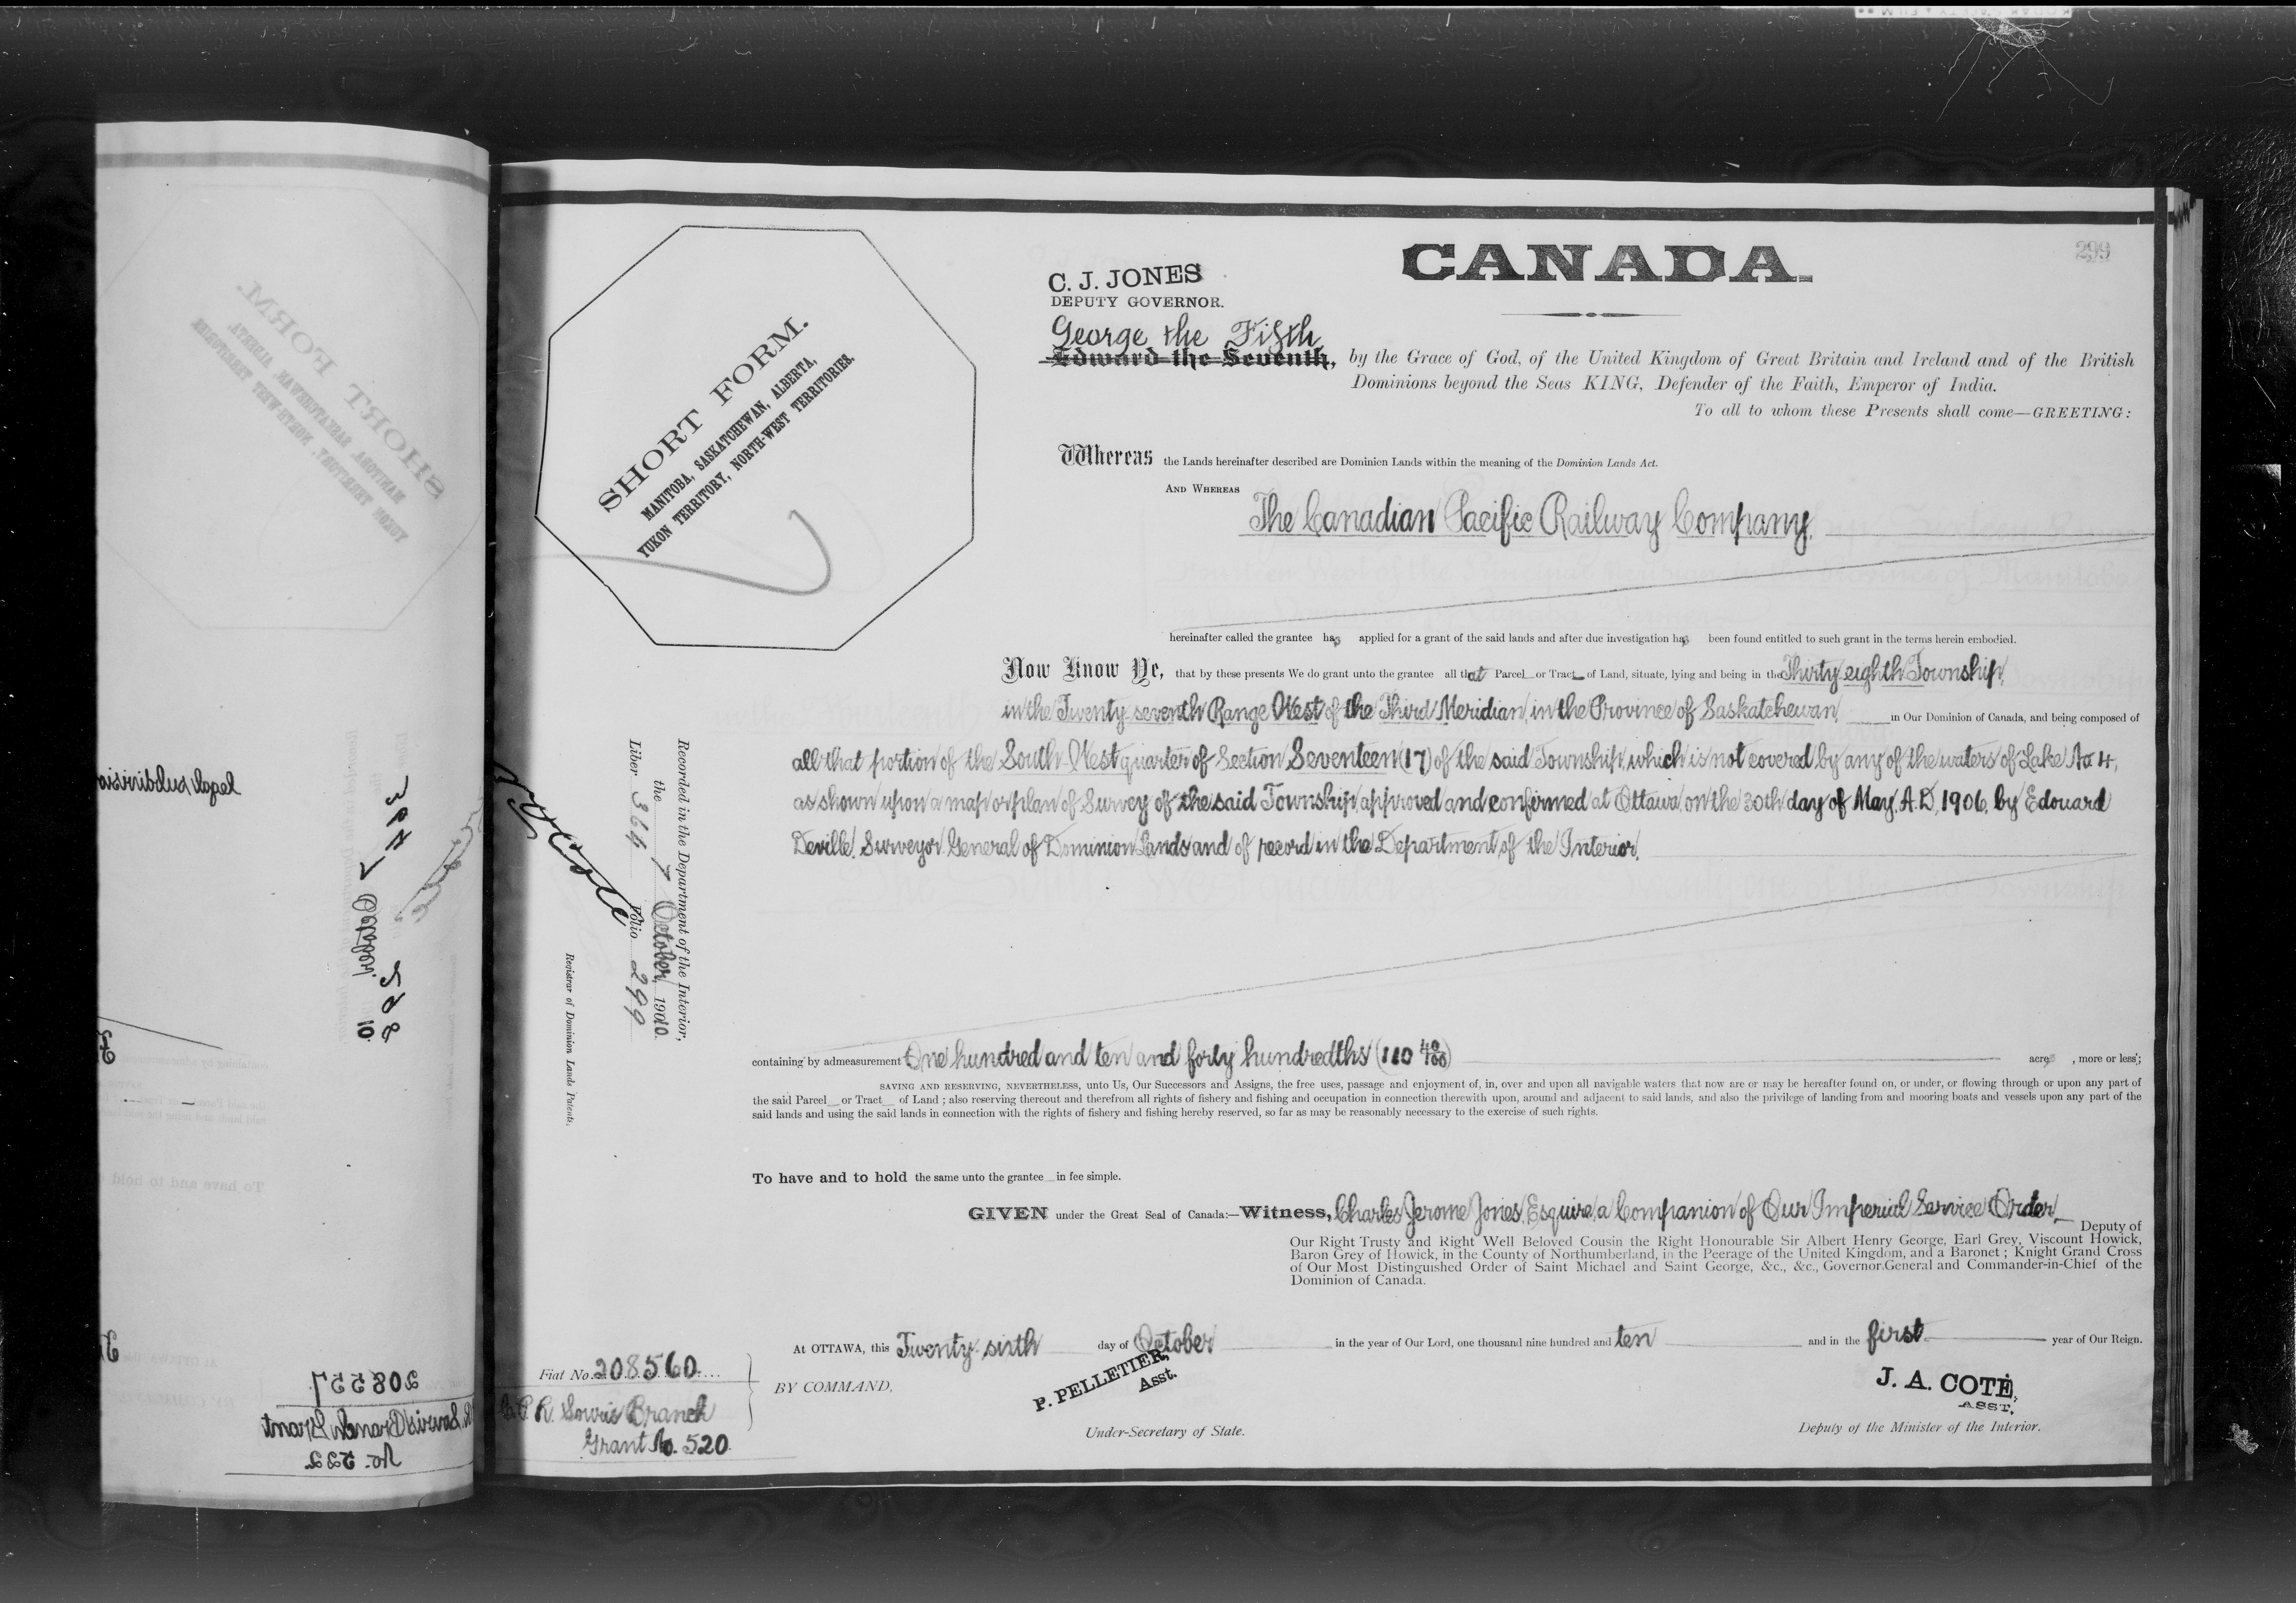 299
CANADA.
C. J. JONES
DEPUTY GOVERNOR.
George the Fifth
Edward the Seventh, by the Grace of God, of the United Kingdom of Great Britain and Ireland and of the British
Dominions beyond the Seas KING, Defender of the Faith, Emperor of India.
To all to whom these Presents shall come—GREETING:
SHORT FORM.
MANITOBA, SASKATCHEWAN, ALBERTA,
YUKON TERRITORY, NORTH-WEST TERRITORIES.
Whereas the Lands hereinafter described are Dominion Lands within the meaning of the Dominion Lands Act.
AND WHEREAS
The Canadian Pacific Railway Company.
hereinafter called the grantee has applied for a grant of the said lands and after due investigation has been found entitled to such grant in the terms herein embodied.
Now Know Ye, that by these presents We do grant unto the grantee all that Parcel or Tract of Land, situate, lying and being in the Thirty eighth Township,
in the Twenty seventh Range West of the Third Meridian, in the Province of Saskatchewan in Our Dominion of Canada, and being composed of
all that portion of the South West quarter of Section Seventeen (17) of the said Township, which is not covered by any of the waters of Lake No 4,
as shown upon a map or plan of Survey of the said Township, approved and confirmed at Ottawa, on the 30th day of May, A.D. 1906, by Edouard
Deville, Surveyor General of Dominion Lands and of record in the Department of the Interior.
Recorded in the Department of the Interior,
the 7 October, 1910.
Liber 364 Folio 299
Registrar of Dominion Lands Patents.
containing by admeasurement One hundred and ten and forty hundredths (110 40/100) acres, more or less;
SAVING AND RESERVING, NEVERTHELESS, unto Us, Our Successors and Assigns, the free uses, passage and enjoyment of, in, over and upon all navigable waters that now are or may be hereafter found on, or under, or flowing through or upon any part of
the said Parcel or Tract of Land ; also reserving thereout and therefrom all rights of fishery and fishing and occupation in connection therewith upon, around and adjacent to said lands, and also the privilege of landing from and mooring boats and vessels upon any part of the
said lands and using the said lands in connection with the rights of fishery and fishing hereby reserved, so far as may be reasonably necessary to the exercise of such rights.
To have and to hold the same unto the grantee in fee simple.
GIVEN under the Great Seal of Canada:—Witness, Charles Jerome Jones, Esquire, a Companion of Our Imperial Service Order, Deputy of
Our Right Trusty and Right Well Beloved Cousin the Right Honourable Sir Albert Henry George, Earl Grey, Viscount Howick,
Baron Grey of Howick, in the County of Northumberland, in the Peerage of the United Kingdom, and a Baronet ; Knight Grand Cross
of Our Most Distinguished Order of Saint Michael and Saint George, &c., &c., Governor General and Commander-in-Chief of the
Dominion of Canada.
At OTTAWA, this Twenty sixth day of October in the year of Our Lord, one thousand nine hundred and ten and in the first year of Our Reign.
Fiat No. 208560.
C.P.R. Souris Branch
Grant No. 520.
BY COMMAND,
P. PELLETIER,
Asst.
Under-Secretary of State.
J. A. COTÉ,
ASST.
Deputy of the Minister of the Interior.
legal subdivisio
208557
R. Souris Branch Grant
No. 522